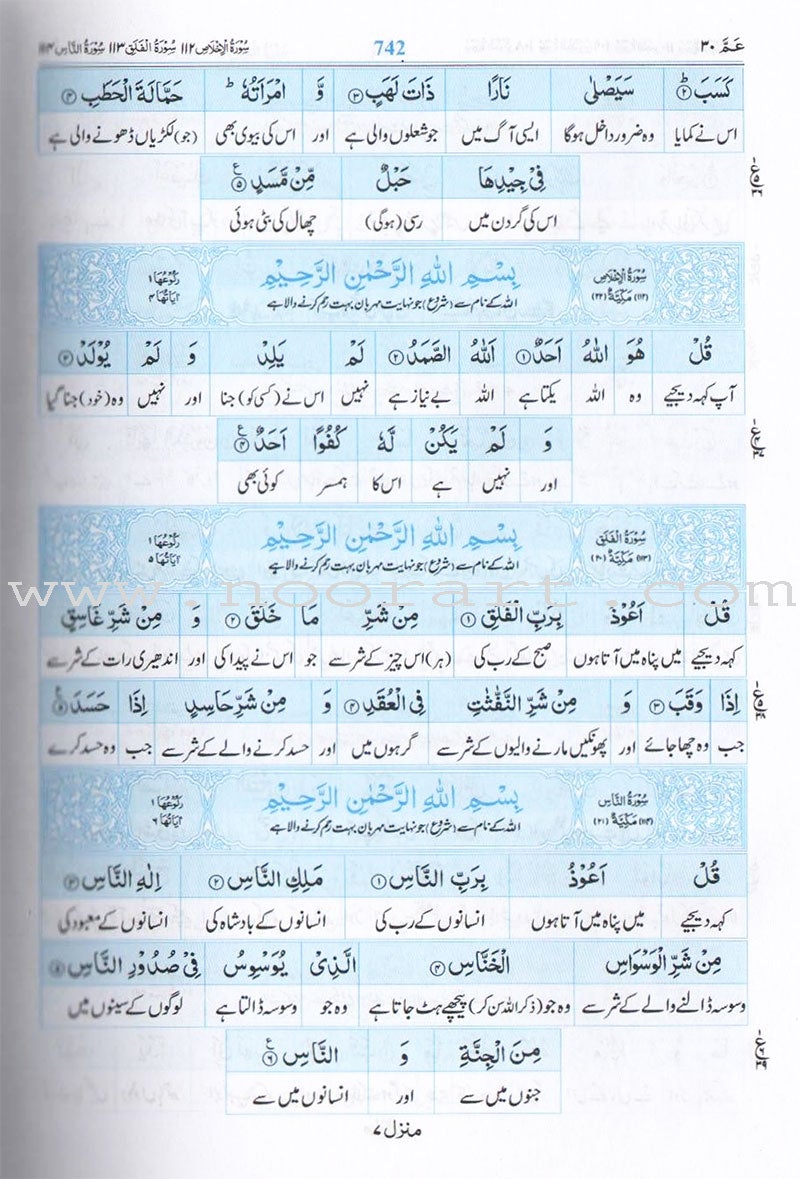 عَمَّ ٣٠ 742 سُوْرَةُ الْاِخْلَاص ١١٢ سُوْرَةُ الْفَلَق ١١٣ سُوْرَةُ النَّاس ١١٤
كَسَبَ ﴿٢﴾ سَيَصْلٰى نَارًا ذَاتَ لَهَبٍ ﴿٣﴾ وَّ امْرَاَتُهٗ ؕ حَمَّالَةَ الْحَطَبِ ﴿٤﴾
اس نے کمایا وہ ضرور داخل ہوگا ایسی آگ میں جو شعلوں والی ہے اور اس کی بیوی بھی (جو) لکڑیاں ڈھونے والی ہے
فِيْ جِيْدِهَا حَبْلٌ مِّنْ مَّسَدٍ ﴿٥﴾
اس کی گردن میں رسی (ہوگی) چھال کی بٹی ہوئی
سُوْرَةُ الْاِخْلَاصِ بِسْمِ اللّٰهِ الرَّحْمٰنِ الرَّحِيْمِ رُكُوْعُهَا ١
(١١٢) مَكِّيَّةٌ (٢٢) اللہ کے نام سے (شروع) جو نہایت مہربان بہت رحم کرنے والا ہے اٰيَاتُهَا ٤
قُلْ هُوَ اللّٰهُ اَحَدٌ ﴿١﴾ اَللّٰهُ الصَّمَدُ ﴿٢﴾ لَمْ يَلِدْ وَ لَمْ يُوْلَدْ ﴿٣﴾
آپ کہہ دیجیے وہ اللہ یکتا ہے اللہ بے نیاز ہے نہیں اس نے (کسی کو) جنا اور نہیں وہ (خود) جنا گیا
وَ لَمْ يَكُنْ لَّهٗ كُفُوًا اَحَدٌ ﴿٤﴾
اور نہیں ہے اس کا ہمسر کوئی بھی
سُوْرَةُ الْفَلَقِ بِسْمِ اللّٰهِ الرَّحْمٰنِ الرَّحِيْمِ رُكُوْعُهَا ١
(١١٣) مَكِّيَّةٌ (٢٠) اللہ کے نام سے (شروع) جو نہایت مہربان بہت رحم کرنے والا ہے اٰيَاتُهَا ٥
www.noorart.com
قُلْ اَعُوْذُ بِرَبِّ الْفَلَقِ ﴿١﴾ مِنْ شَرِّ مَا خَلَقَ ﴿٢﴾ وَ مِنْ شَرِّ غَاسِقٍ
کہہ دیجیے میں پناہ میں آتا ہوں صبح کے رب کی (ہر) اس چیز کے شر سے جو اس نے پیدا کی اور اندھیری رات کے شر سے
اِذَا وَقَبَ ﴿٣﴾ وَ مِنْ شَرِّ النَّفّٰثٰتِ فِي الْعُقَدِ ﴿٤﴾ وَ مِنْ شَرِّ حَاسِدٍ اِذَا حَسَدَ ﴿٥﴾
جب وہ چھا جائے اور پھونکیں مارنے والیوں کے شر سے گرہوں میں اور حسد کرنے والے کے شر سے جب وہ حسد کرے
سُوْرَةُ النَّاسِ بِسْمِ اللّٰهِ الرَّحْمٰنِ الرَّحِيْمِ رُكُوْعُهَا ١
(١١٤) مَكِّيَّةٌ (٢١) اللہ کے نام سے (شروع) جو نہایت مہربان بہت رحم کرنے والا ہے اٰيَاتُهَا ٦
قُلْ اَعُوْذُ بِرَبِّ النَّاسِ ﴿١﴾ مَلِكِ النَّاسِ ﴿٢﴾ اِلٰهِ النَّاسِ ﴿٣﴾
کہہ دیجیے میں پناہ میں آتا ہوں انسانوں کے رب کی انسانوں کے بادشاہ کی انسانوں کے معبود کی
مِنْ شَرِّ الْوَسْوَاسِ الْخَنَّاسِ ﴿٤﴾ الَّذِيْ يُوَسْوِسُ فِيْ صُدُوْرِ النَّاسِ ﴿٥﴾
وسوسہ ڈالنے والے کے شر سے وہ جو (ذکر اللہ سن کر) پیچھے ہٹ جاتا ہے وہ جو وسوسہ ڈالتا ہے لوگوں کے سینوں میں
مِنَ الْجِنَّةِ وَ النَّاسِ ﴿٦﴾
جنوں میں سے اور انسانوں میں سے
منزل ٧